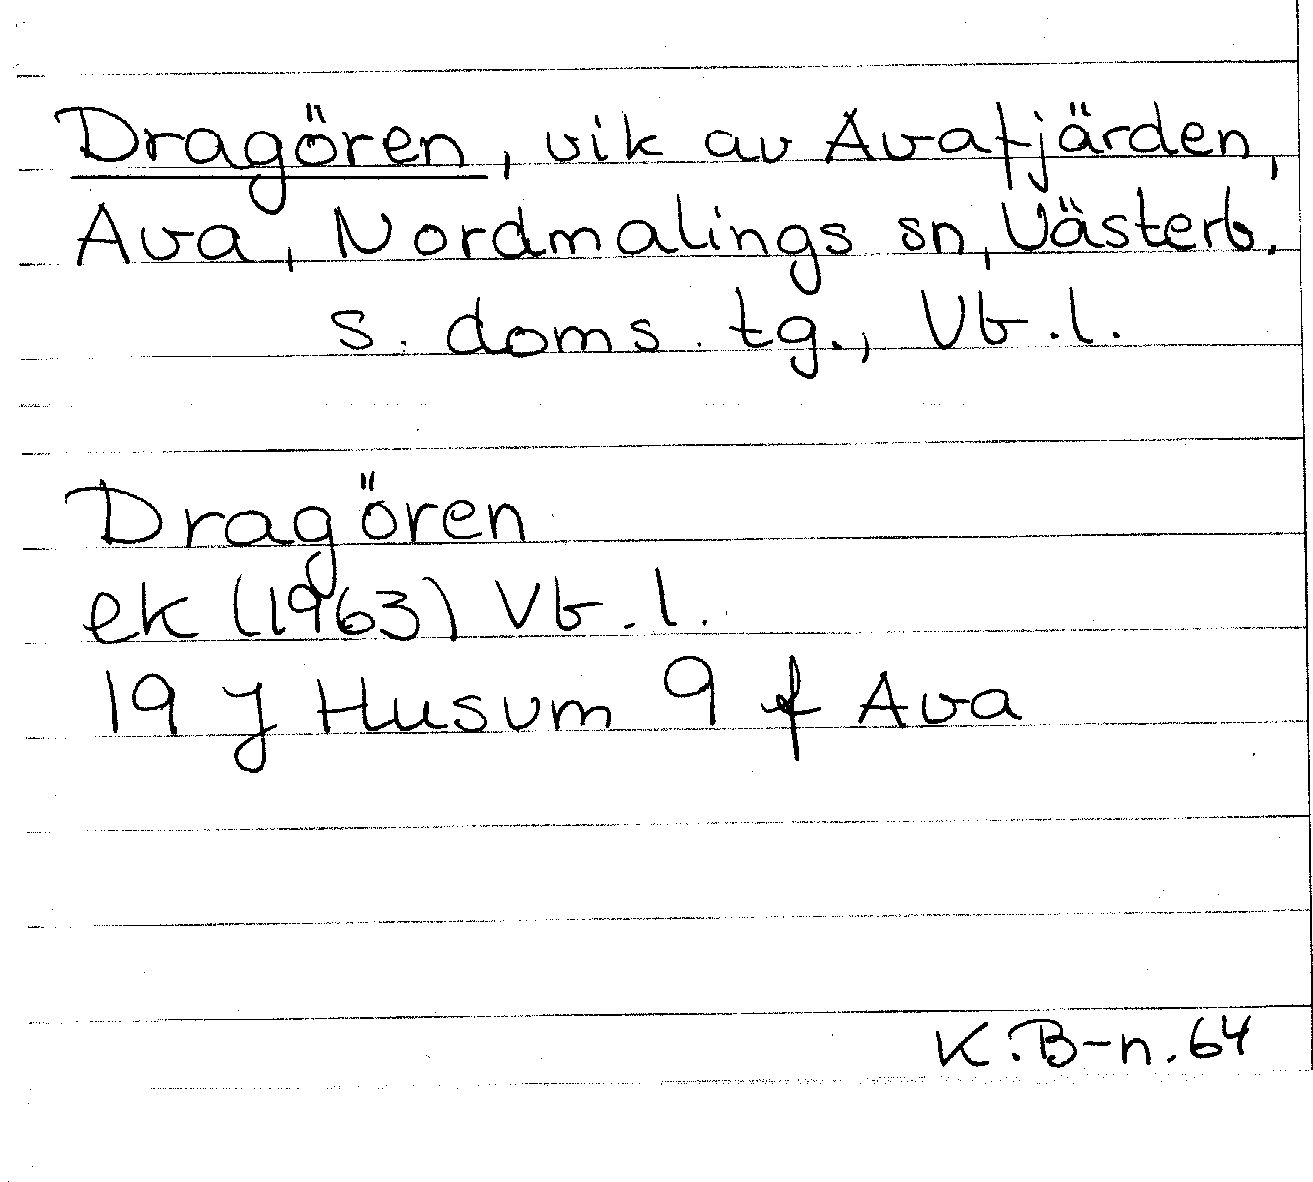 Dragören, vik av Avafjärden,
Ava, Nordmalings sn, Västerb.
s. doms. tg., Vb. l.
Dragören
ek (1963) Vb. l.
19 J Husum 9 f Ava
K. B-n. 64